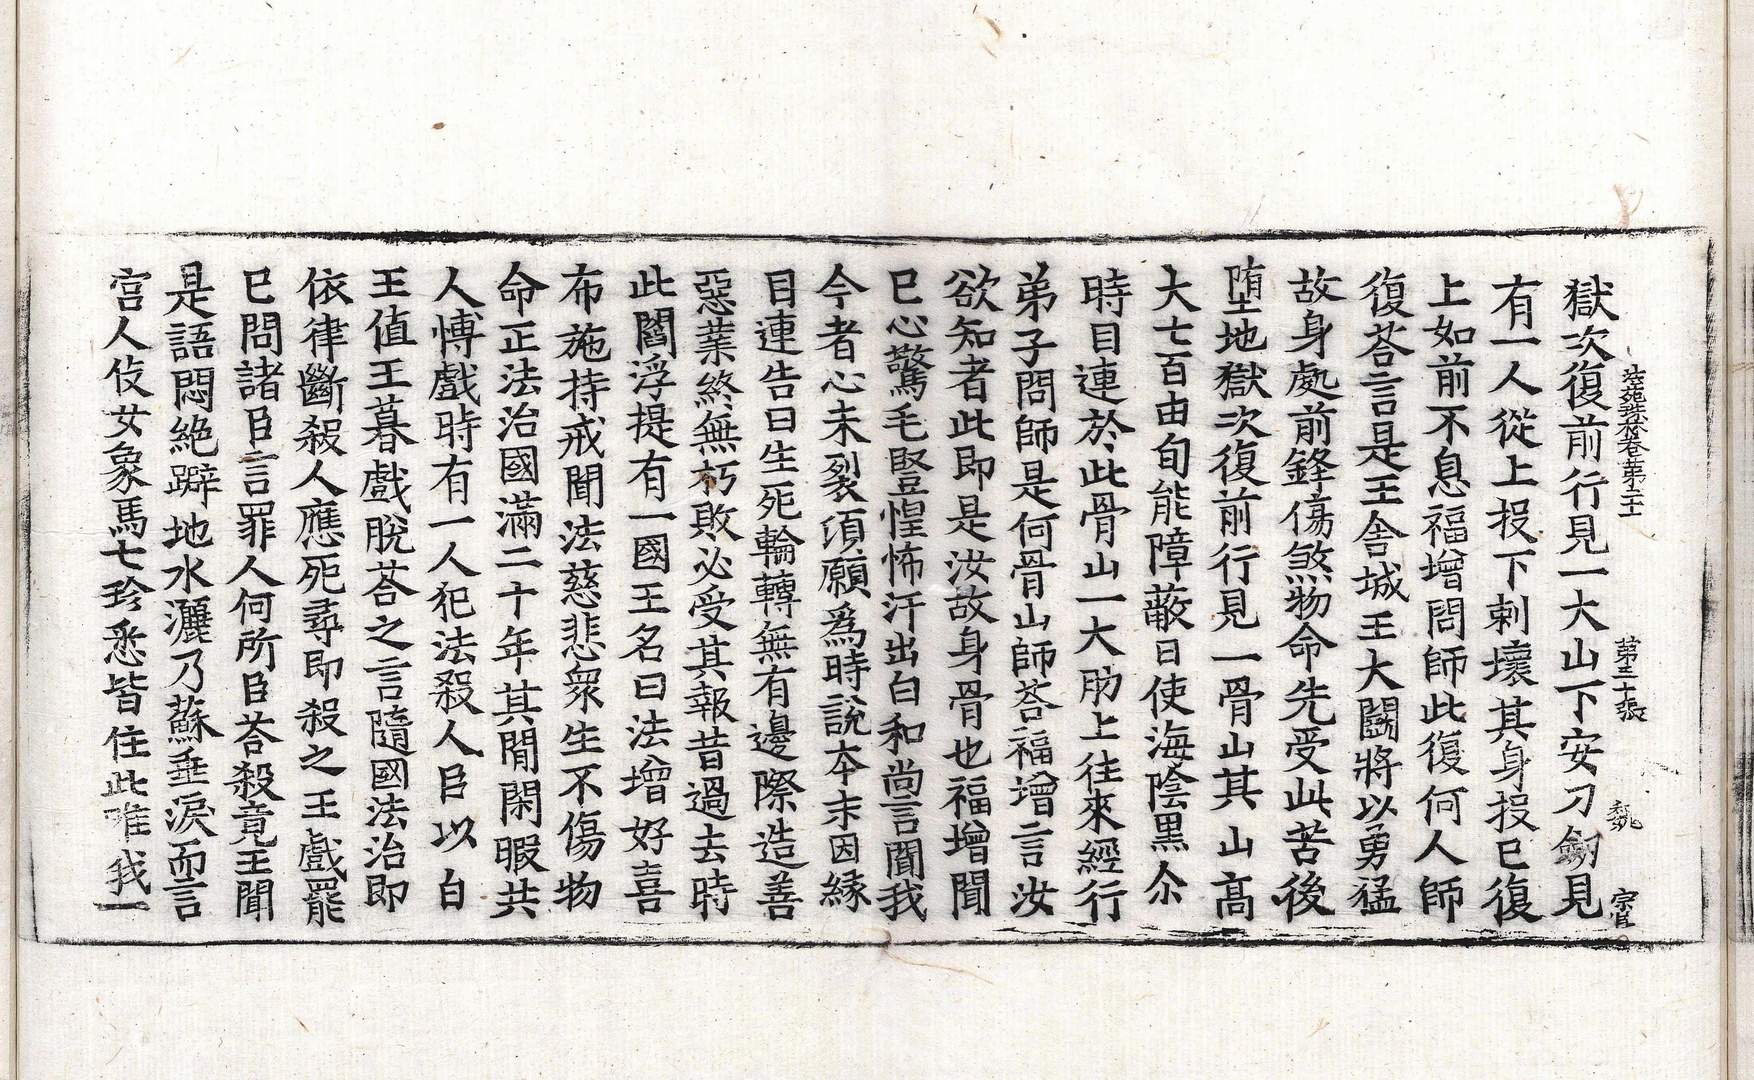 法苑珠林卷第二十 第三十張 魏 宗官
獄次復前行見一大山下安刀劒見
有一人從上投下剌壞其身投已復
上如前不息福增問師此復何人師
復荅言是王舍城王大鬪將以勇猛
故身處前鋒傷煞物命先受此苦後
墮地獄次復前行見一骨山其山高
大七百由旬能障蔽日使海陰黑尒
時目連於此骨山一大肋上往來經行
弟子問師是何骨山師荅福增言汝
欲知者此即是汝故身骨也福增聞
已心驚毛竪惶怖汗出白和尚言聞我
今者心未裂須願爲時說本末因緣
目連告曰生死輪轉無有邊際造善
惡業終無朽敗必受其報昔過去時
此閻浮提有一國王名曰法增好喜
布施持戒聞法慈悲衆生不傷物
命正法治國滿二十年其閒閑暇共
人愽戲時有一人犯法殺人臣以白
王值王暮戲脫荅之言隨國法治即
依律斷殺人應死尋即殺之王戲罷
已問諸臣言罪人何所臣荅殺竟王聞
是語悶絶躃地水灑乃蘇垂淚而言
宮人伎女象馬七珍悉皆住此唯我一